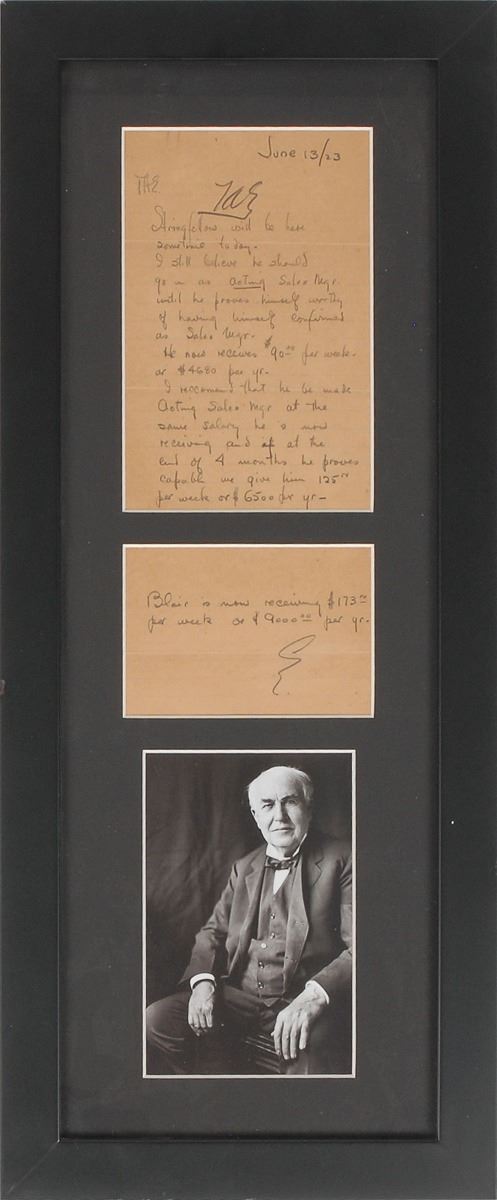 June 13/23
TAE.
TAE
Stringfellow will be here
sometime today.
I still believe he should
go in as acting Sales Mgr.
until he proves himself worthy
of having himself confirmed
as Sales Mgr.
He now receives $90.00 per week
or $4680 per yr.
I reccomend that he be made
Acting Sales Mgr at the
same salary he is now
receiving and if at the
end of 4 months he proves
capable we give him 125.00
per week or $6500 per yr—
Blair is now receiving $173.00
per week or $9000.00 per yr.